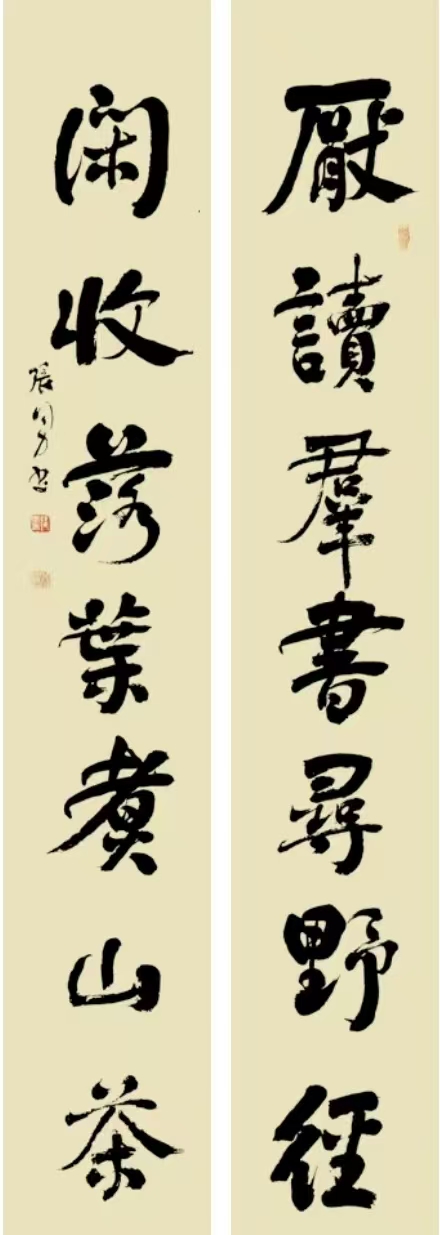 厭讀羣書尋野徑
閑收落葉煮山茶
張书